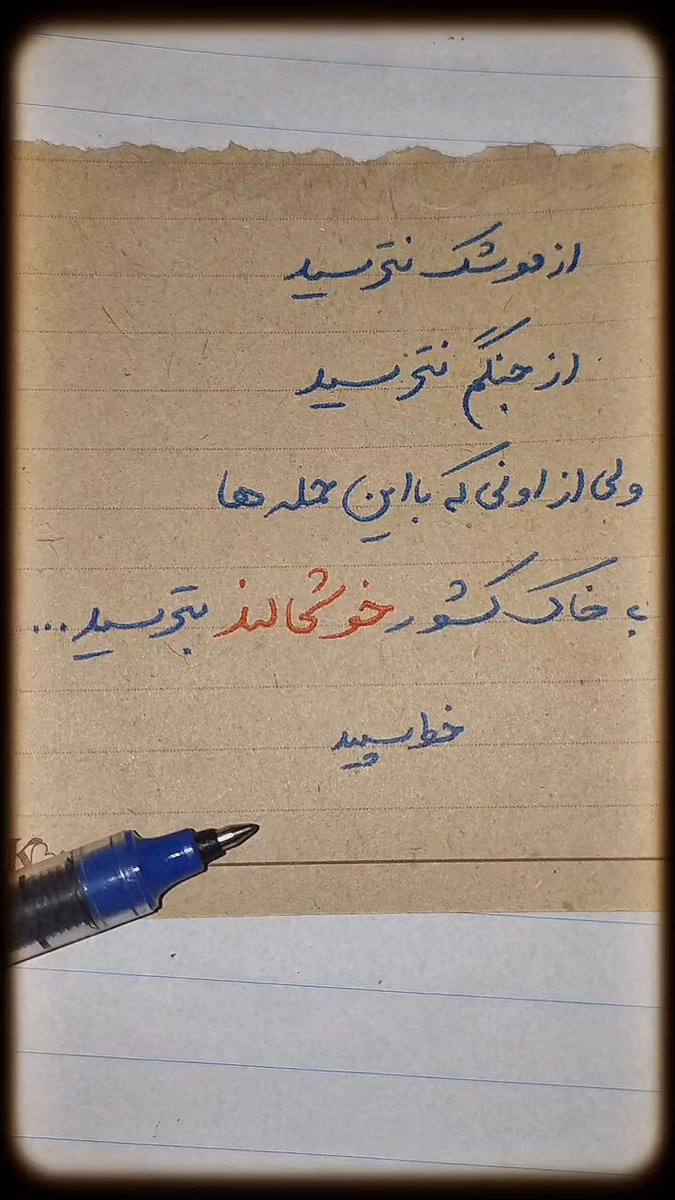 از موشک نترسید
از جنگم نترسید
ولی از اونی که با این حمله ها
به خاک کشور خوشحالند بترسید...
خط سپید